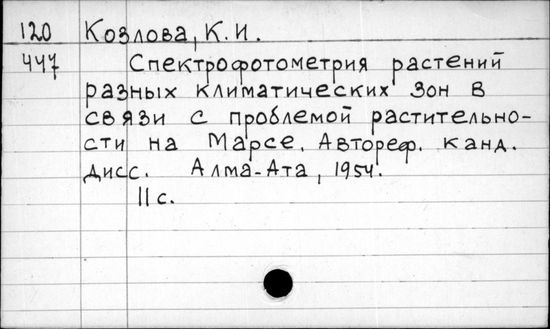 120 Козлова, К. И.
447 Спектрофотометрия растений
разных климатических зон в
связи с проблемой растительно-
сти на Марсе. Автореф. канд.
дисс. Алма-Ата, 1954.
11 с.